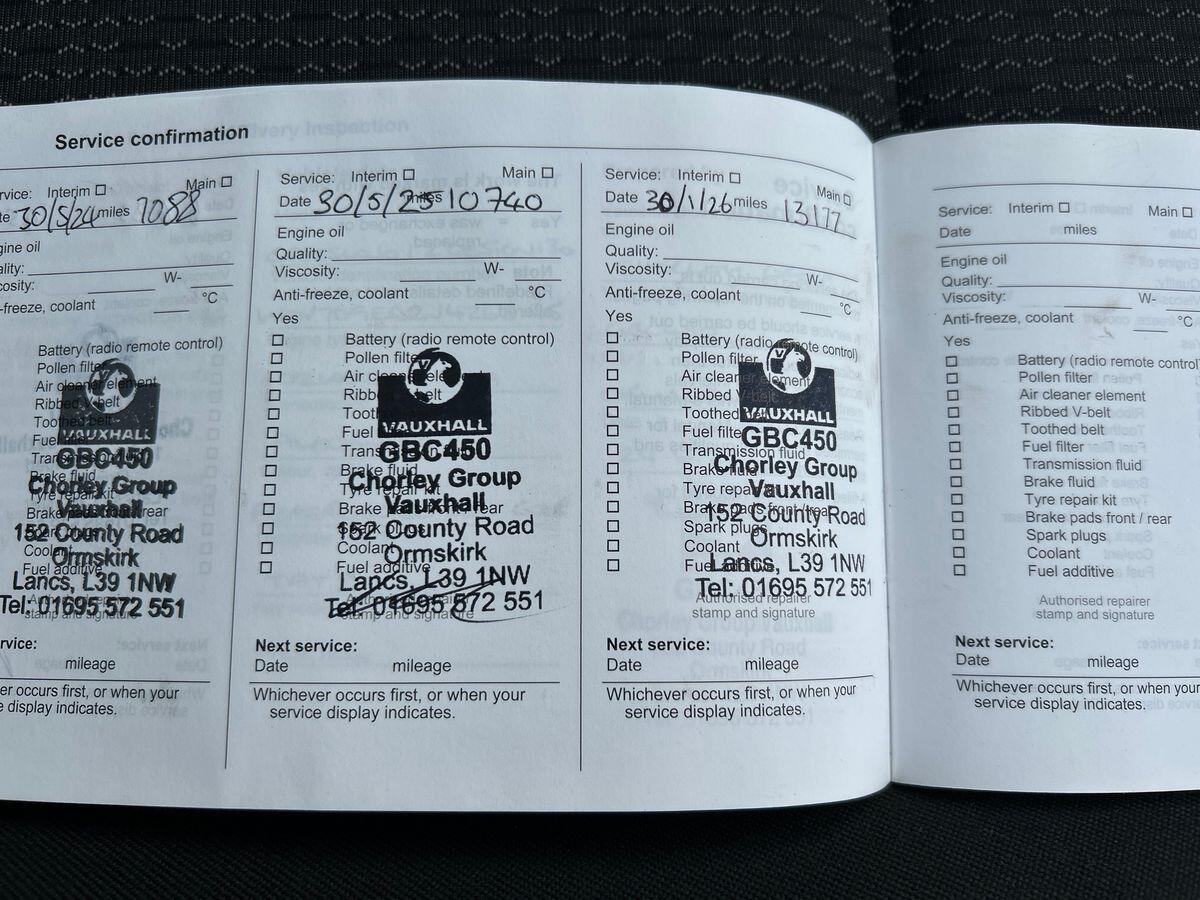 Service confirmation
rvice: Interim Main
te 30/5/24 miles 7088
gine oil
ality:
cosity: W-
-freeze, coolant °C
Battery (radio remote control)
Pollen filter
Air cleaner element
Ribbed V-belt
Toothed belt
Fuel filter
Transmission fluid
Brake fluid
Tyre repair kit
Brake pads front / rear
Coolant
Fuel additive
VAUXHALL
GBC450
Chorley Group
Vauxhall
152 County Road
Ormskirk
Lancs, L39 1NW
Tel: 01695 572 551
Authorised repairer
stamp and signature
rvice:
mileage
er occurs first, or when your
e display indicates.
Service: Interim Main
Date 30/5/25 miles 10740
Engine oil
Quality:
Viscosity: W-
Anti-freeze, coolant °C
Yes
Battery (radio remote control)
Pollen filter
Air cleaner element
Ribbed V-belt
Toothed belt
Fuel filter
Transmission fluid
Brake fluid
Tyre repair kit
Brake pads front / rear
Spark plugs
Coolant
Fuel additive
VAUXHALL
GBC450
Chorley Group
Vauxhall
152 County Road
Ormskirk
Lancs, L39 1NW
Tel: 01695 572 551
Authorised repairer
stamp and signature
Next service:
Date mileage
Whichever occurs first, or when your
service display indicates.
Service: Interim Main
Date 30/1/26 miles 13177
Engine oil
Quality:
Viscosity: W-
Anti-freeze, coolant °C
Yes
Battery (radio remote control)
Pollen filter
Air cleaner element
Ribbed V-belt
Toothed belt
Fuel filter
Transmission fluid
Brake fluid
Tyre repair kit
Brake pads front / rear
Spark plugs
Coolant
Fuel additive
VAUXHALL
GBC450
Chorley Group
Vauxhall
152 County Road
Ormskirk
Lancs, L39 1NW
Tel: 01695 572 551
Authorised repairer
stamp and signature
Next service:
Date mileage
Whichever occurs first, or when your
service display indicates.
Service: Interim Main
Date miles
Engine oil
Quality:
Viscosity: W-
Anti-freeze, coolant °C
Yes
Battery (radio remote control)
Pollen filter
Air cleaner element
Ribbed V-belt
Toothed belt
Fuel filter
Transmission fluid
Brake fluid
Tyre repair kit
Brake pads front / rear
Spark plugs
Coolant
Fuel additive
Authorised repairer
stamp and signature
Next service:
Date mileage
Whichever occurs first, or when your
service display indicates.